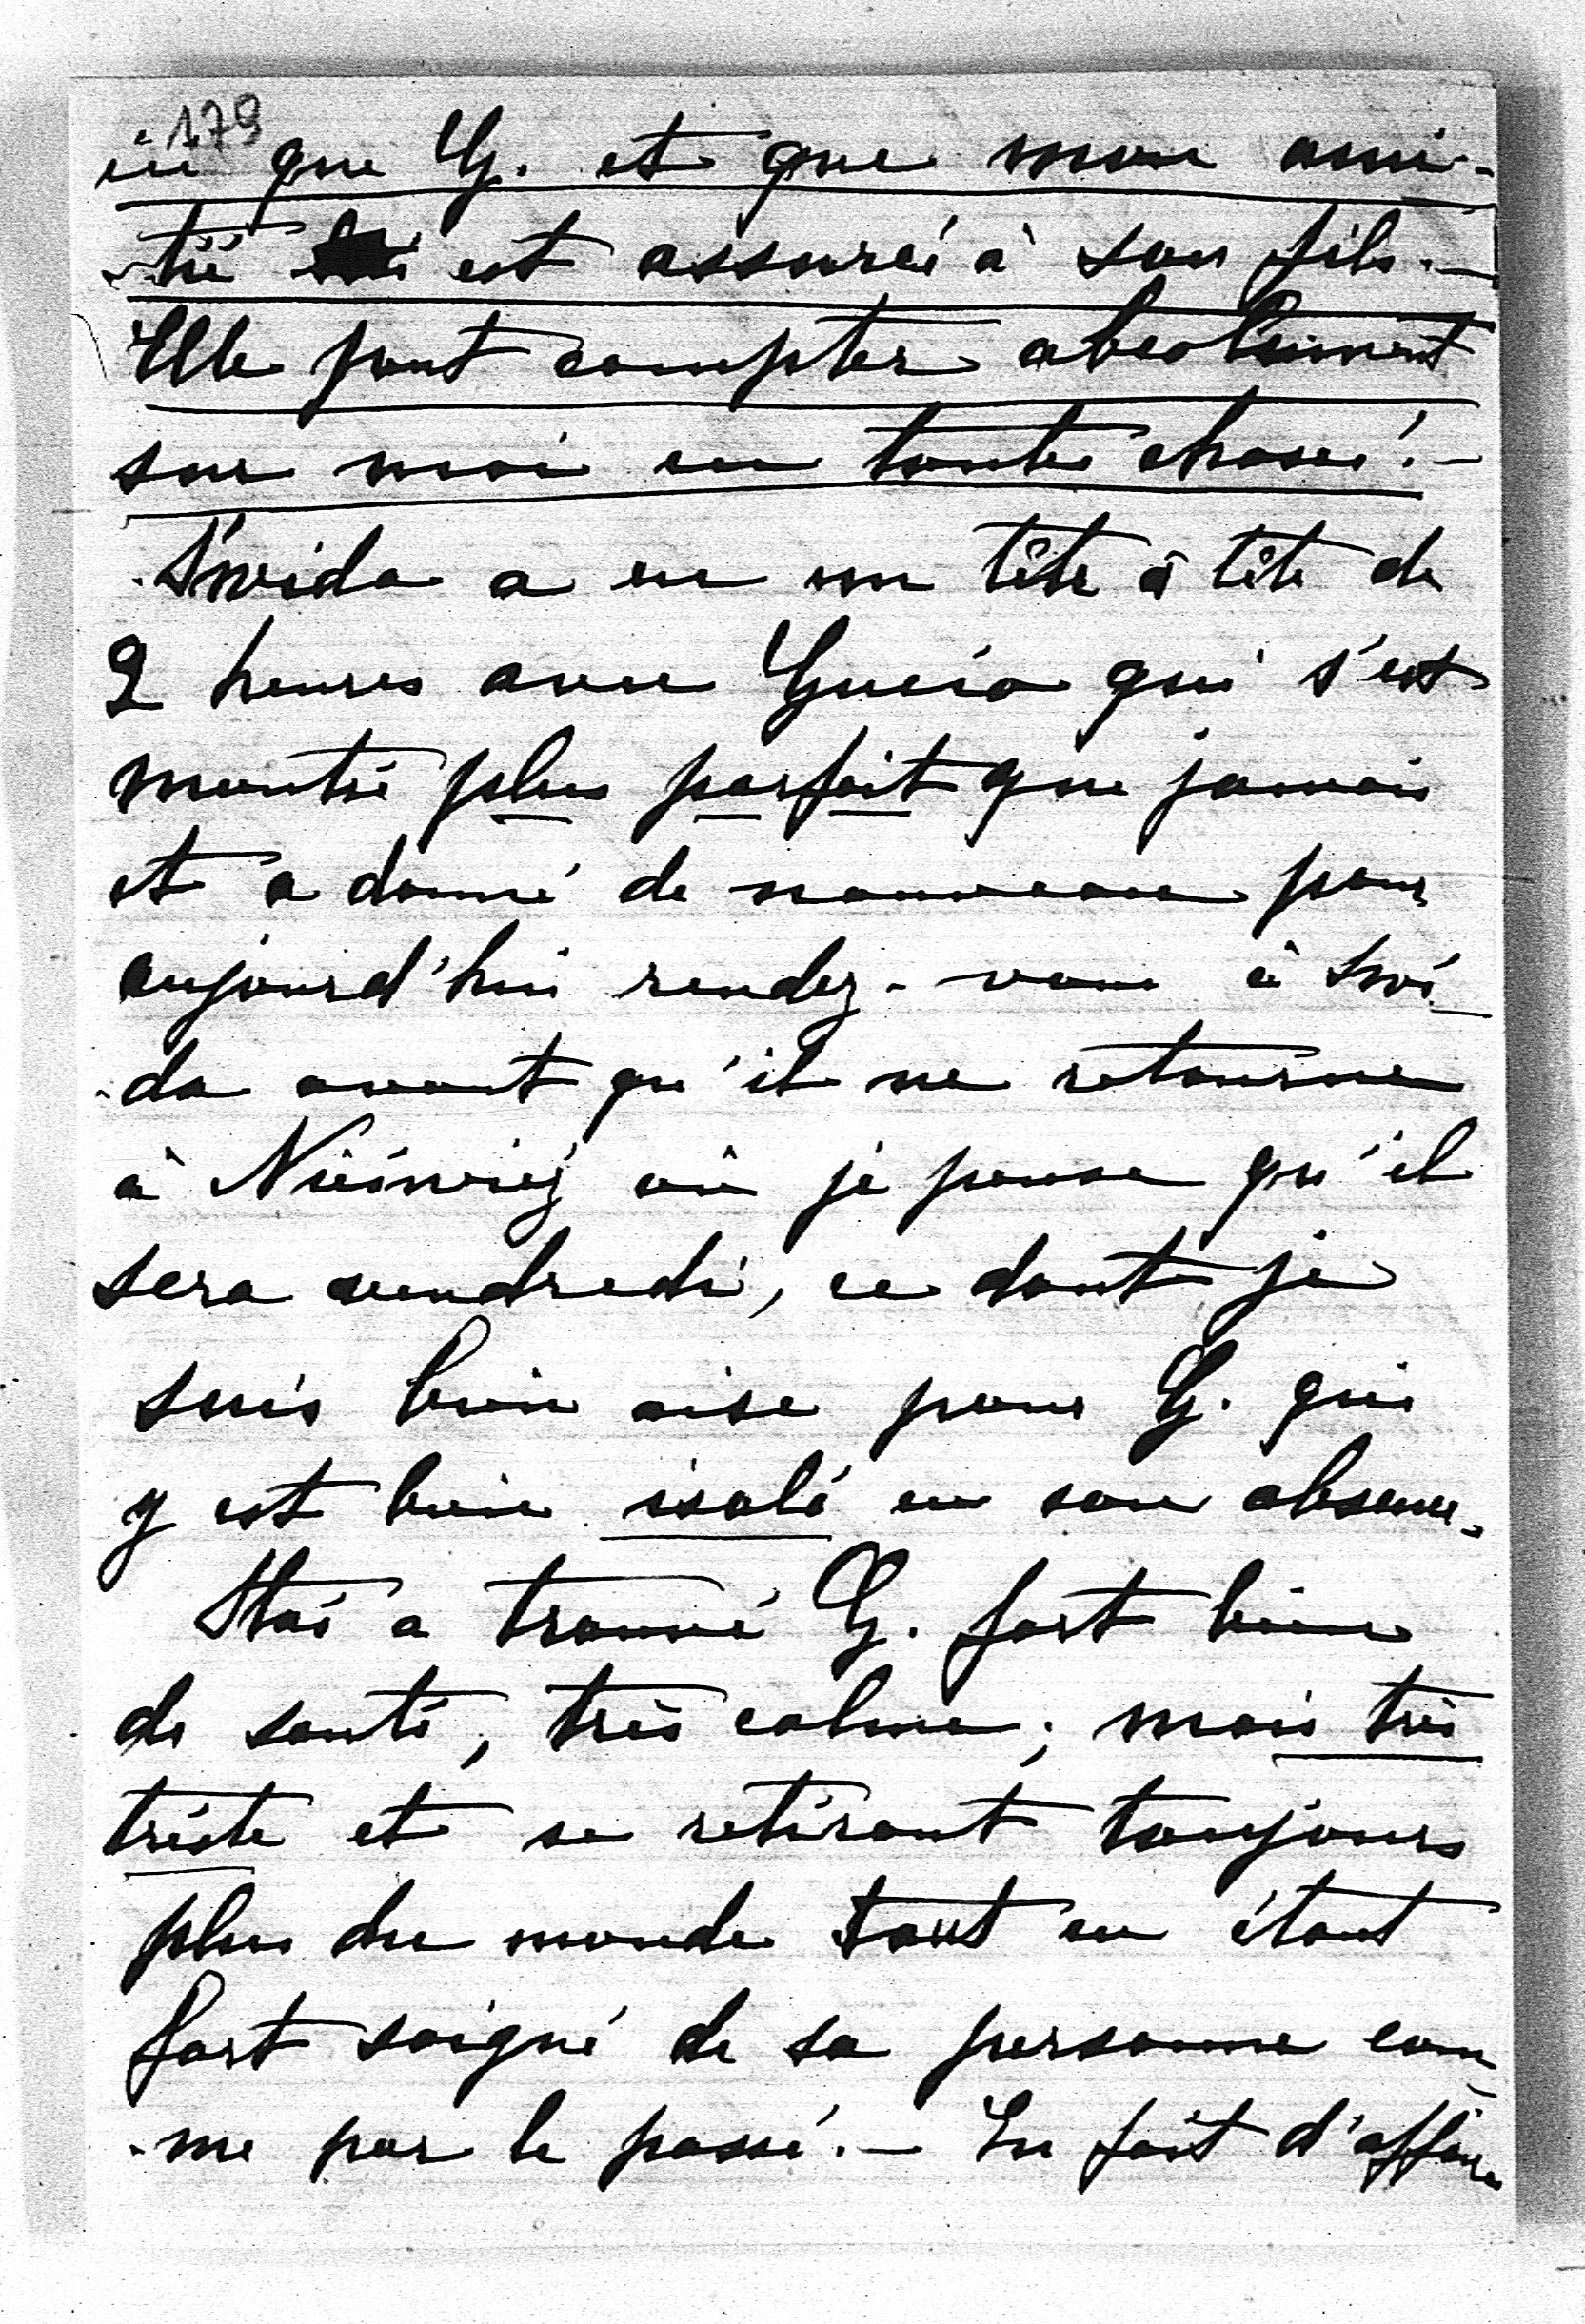 179
que G. et que mon ami-
-tié est assurée à son fils.-
Elle peut compter absolument
sur moi en toute chose!-
Swida a eu un tête à tête de
2 heures avec Gucio qui s'est
montré plus parfait que jamais
et a donné de nouveau pour
aujourd'hui rendez-vous à Swi-
-da avant qu'il ne retourne
à Nieśwież où je pense qu'il
sera vendredi, ce dont je
suis bien aise pour G. qui
y est bien isolé en son absence.
Staś a trouvé G. fort bien
de santé, très calme; mais très
triste et se retirant toujours
plus du monde tout en étant
fort soigné de sa personne com-
-me par le passé.- En fait d'affaires